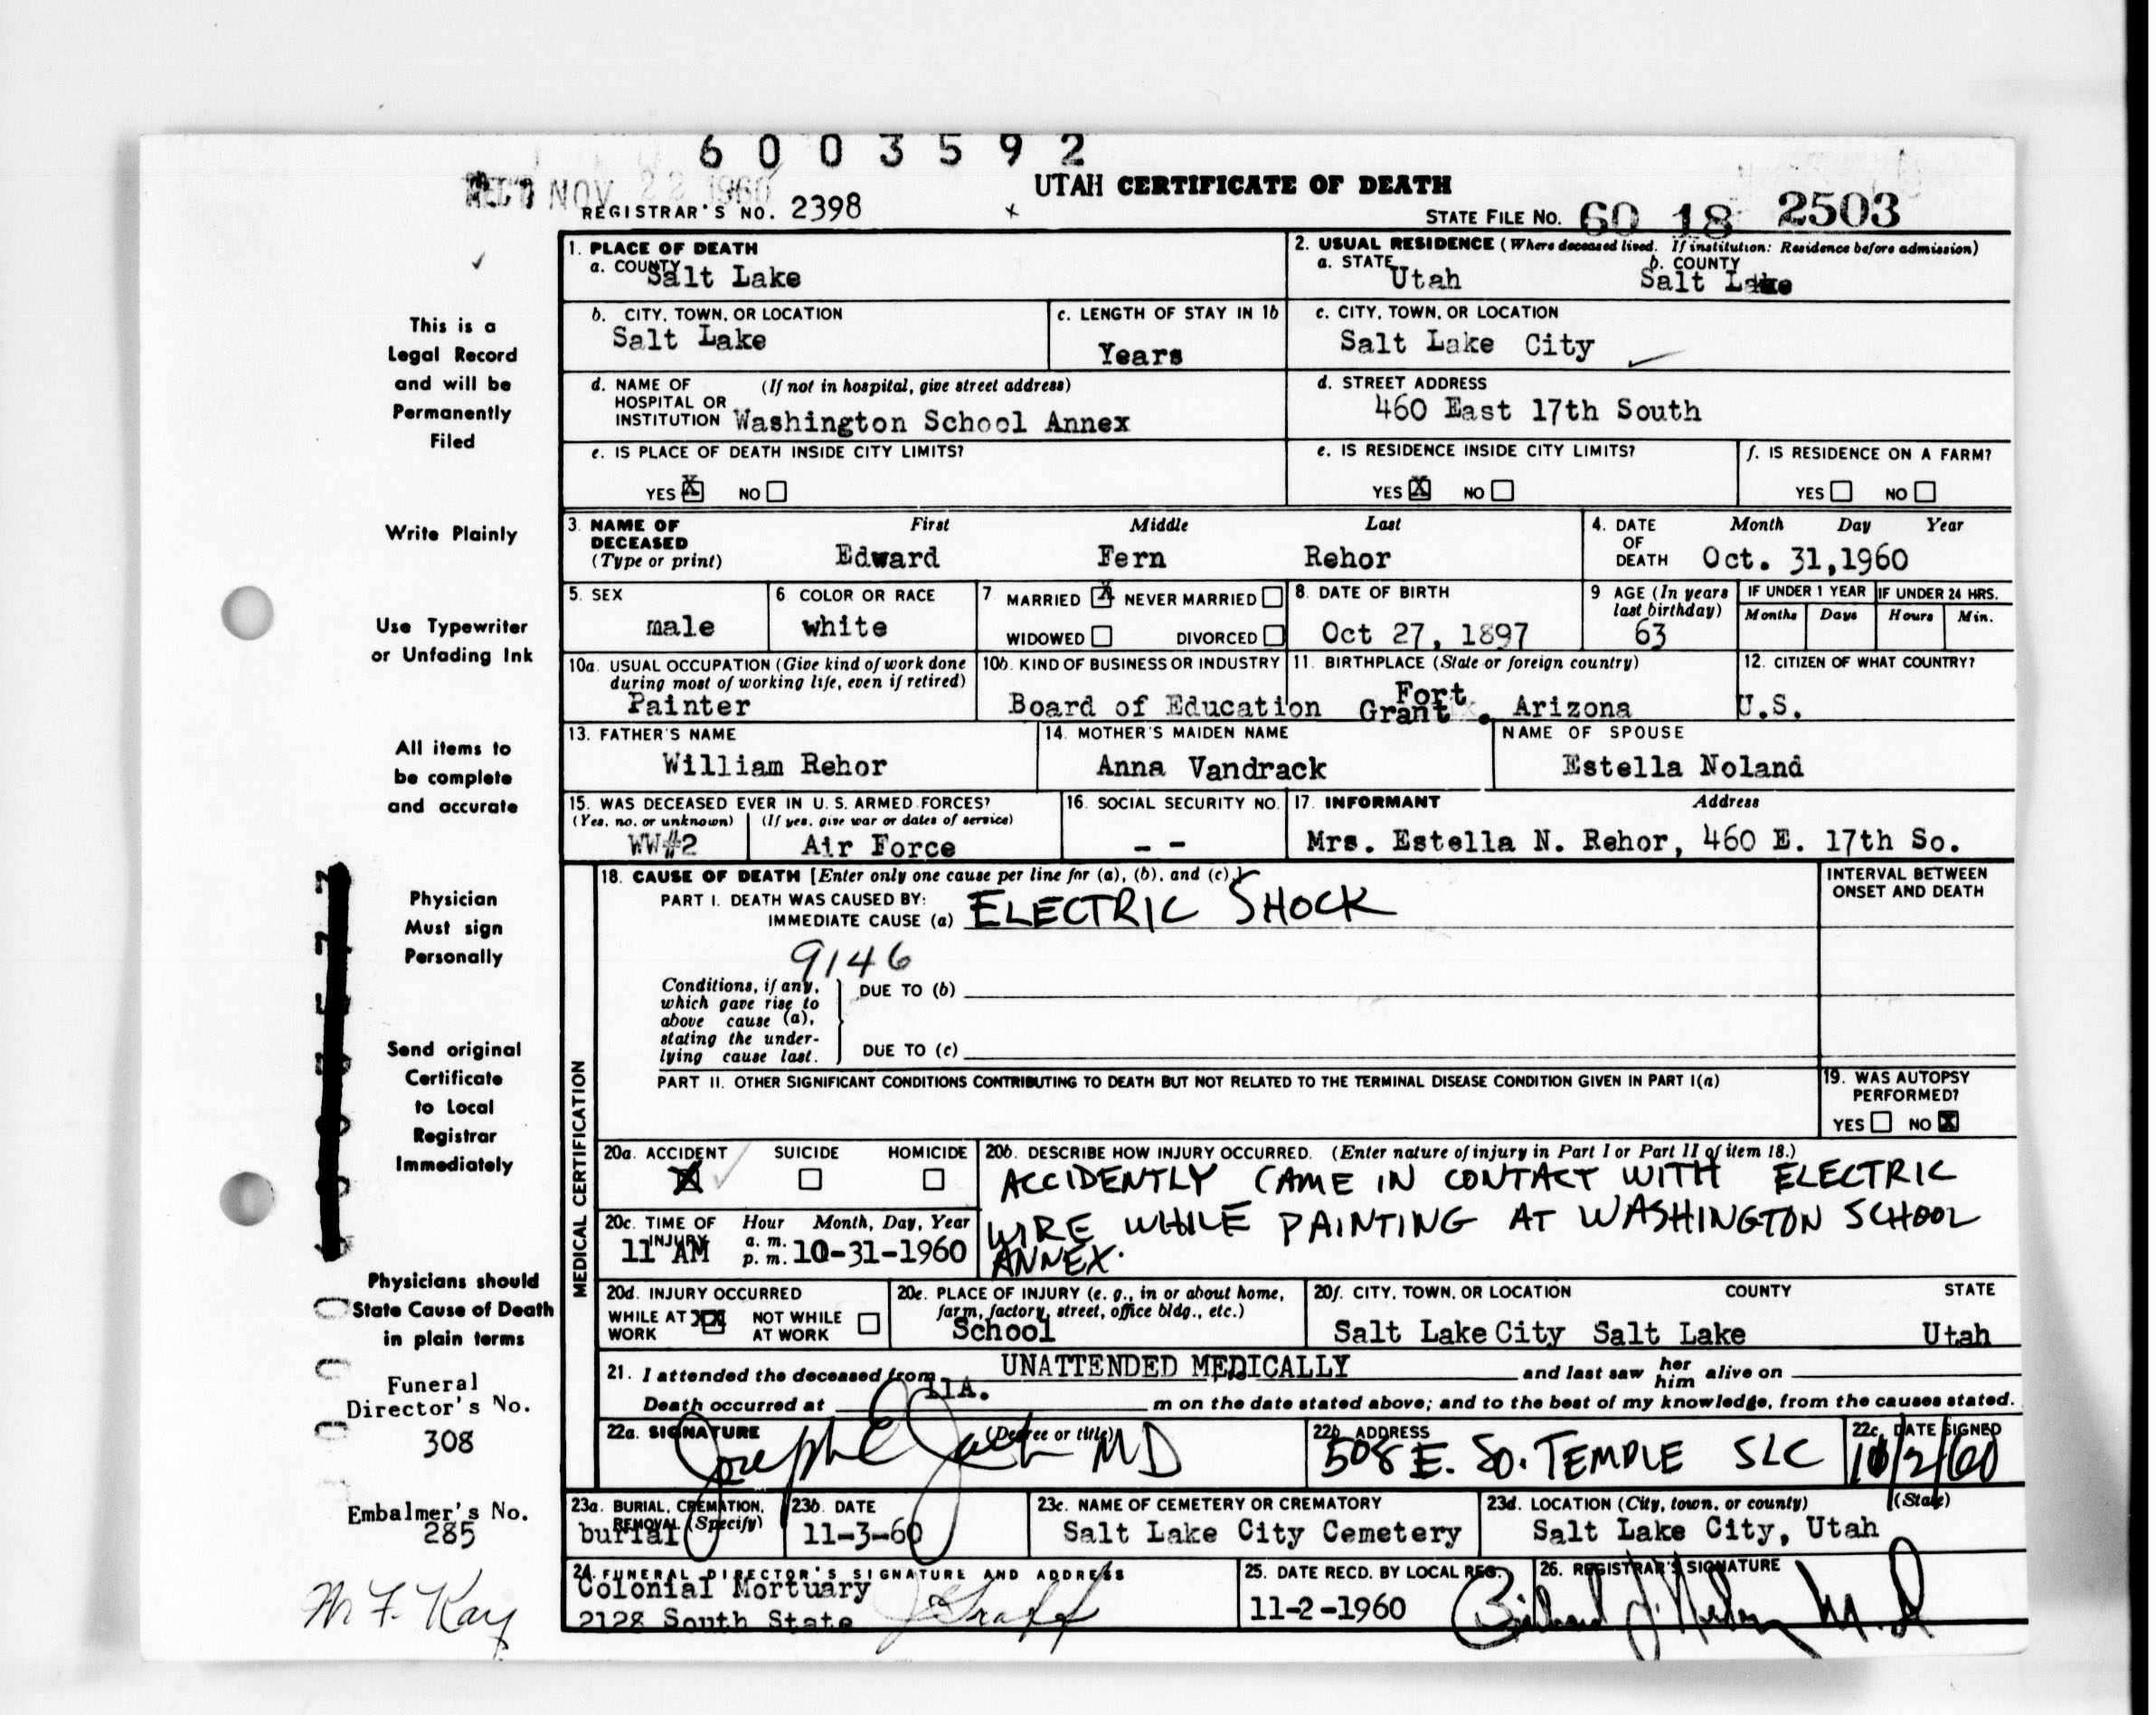 6 0 0 3 5 9 2
REC'D NOV 22 1960
UTAH CERTIFICATE OF DEATH
REGISTRAR'S NO. 2398
STATE FILE NO. 60 18 2503
1. PLACE OF DEATH
a. COUNTY Salt Lake
2. USUAL RESIDENCE (Where deceased lived. If institution: Residence before admission)
a. STATE Utah b. COUNTY Salt Lake
b. CITY, TOWN, OR LOCATION Salt Lake
c. LENGTH OF STAY IN 1b Years
c. CITY, TOWN, OR LOCATION Salt Lake City
d. NAME OF HOSPITAL OR INSTITUTION (If not in hospital, give street address) Washington School Annex
d. STREET ADDRESS 460 East 17th South
e. IS PLACE OF DEATH INSIDE CITY LIMITS?
YES X NO
e. IS RESIDENCE INSIDE CITY LIMITS?
YES X NO
f. IS RESIDENCE ON A FARM?
YES NO
3. NAME OF DECEASED (Type or print) First Middle Last
Edward Fern Rehor
4. DATE OF DEATH Month Day Year
Oct. 31,1960
5. SEX male
6 COLOR OR RACE white
7 MARRIED X NEVER MARRIED
WIDOWED DIVORCED
8. DATE OF BIRTH Oct 27, 1897
9 AGE (In years last birthday) 63
IF UNDER 1 YEAR Months Days
IF UNDER 24 HRS. Hours Min.
10a. USUAL OCCUPATION (Give kind of work done during most of working life, even if retired)
Painter
10b. KIND OF BUSINESS OR INDUSTRY
Board of Education
11. BIRTHPLACE (State or foreign country)
Fort Grant, Arizona
12. CITIZEN OF WHAT COUNTRY?
U.S.
13. FATHER'S NAME
William Rehor
14. MOTHER'S MAIDEN NAME
Anna Vandrack
NAME OF SPOUSE
Estella Noland
15. WAS DECEASED EVER IN U. S. ARMED FORCES?
(Yes, no, or unknown) (If yes, give war or dates of service)
WW#2 Air Force
16. SOCIAL SECURITY NO.
- -
17. INFORMANT Address
Mrs. Estella N. Rehor, 460 E. 17th So.
MEDICAL CERTIFICATION
18. CAUSE OF DEATH [Enter only one cause per line for (a), (b), and (c).]
PART I. DEATH WAS CAUSED BY:
IMMEDIATE CAUSE (a) ELECTRIC SHOCK
INTERVAL BETWEEN ONSET AND DEATH
9146
Conditions, if any, which gave rise to above cause (a), stating the underlying cause last.
DUE TO (b)
DUE TO (c)
PART II. OTHER SIGNIFICANT CONDITIONS CONTRIBUTING TO DEATH BUT NOT RELATED TO THE TERMINAL DISEASE CONDITION GIVEN IN PART I(a)
19. WAS AUTOPSY PERFORMED?
YES NO X
20a. ACCIDENT SUICIDE HOMICIDE
X
20b. DESCRIBE HOW INJURY OCCURRED. (Enter nature of injury in Part I or Part II of item 18.)
ACCIDENTLY CAME IN CONTACT WITH ELECTRIC
WIRE WHILE PAINTING AT WASHINGTON SCHOOL
ANNEX.
20c. TIME OF INJURY Hour Month, Day, Year
11 AM a. m. p. m. 10-31-1960
20d. INJURY OCCURRED
WHILE AT WORK XX NOT WHILE AT WORK
20e. PLACE OF INJURY (e. g., in or about home, farm, factory, street, office bldg., etc.)
School
20f. CITY, TOWN, OR LOCATION COUNTY STATE
Salt Lake City Salt Lake Utah
21. I attended the deceased from UNATTENDED MEDICALLY and last saw her him alive on
Death occurred at 11A. m on the date stated above; and to the best of my knowledge, from the causes stated.
22a. SIGNATURE (Degree or title)
Joseph E MD
22b. ADDRESS
508 E. SO. TEMPLE SLC
22c. DATE SIGNED
23a. BURIAL, CREMATION, REMOVAL (Specify)
burial
23b. DATE
11-3-60
23c. NAME OF CEMETERY OR CREMATORY
Salt Lake City Cemetery
23d. LOCATION (City, town, or county) (State)
Salt Lake City, Utah
24. FUNERAL DIRECTOR'S SIGNATURE AND ADDRESS
Colonial Mortuary
2128 South State
25. DATE RECD. BY LOCAL REG.
11-2-1960
26. REGISTRAR'S SIGNATURE
This is a
Legal Record
and will be
Permanently
Filed
Write Plainly
Use Typewriter
or Unfading Ink
All items to
be complete
and accurate
Physician
Must sign
Personally
Send original
Certificate
to Local
Registrar
Immediately
Physicians should
State Cause of Death
in plain terms
Funeral
Director's No.
308
Embalmer's No.
285
M F. Kay